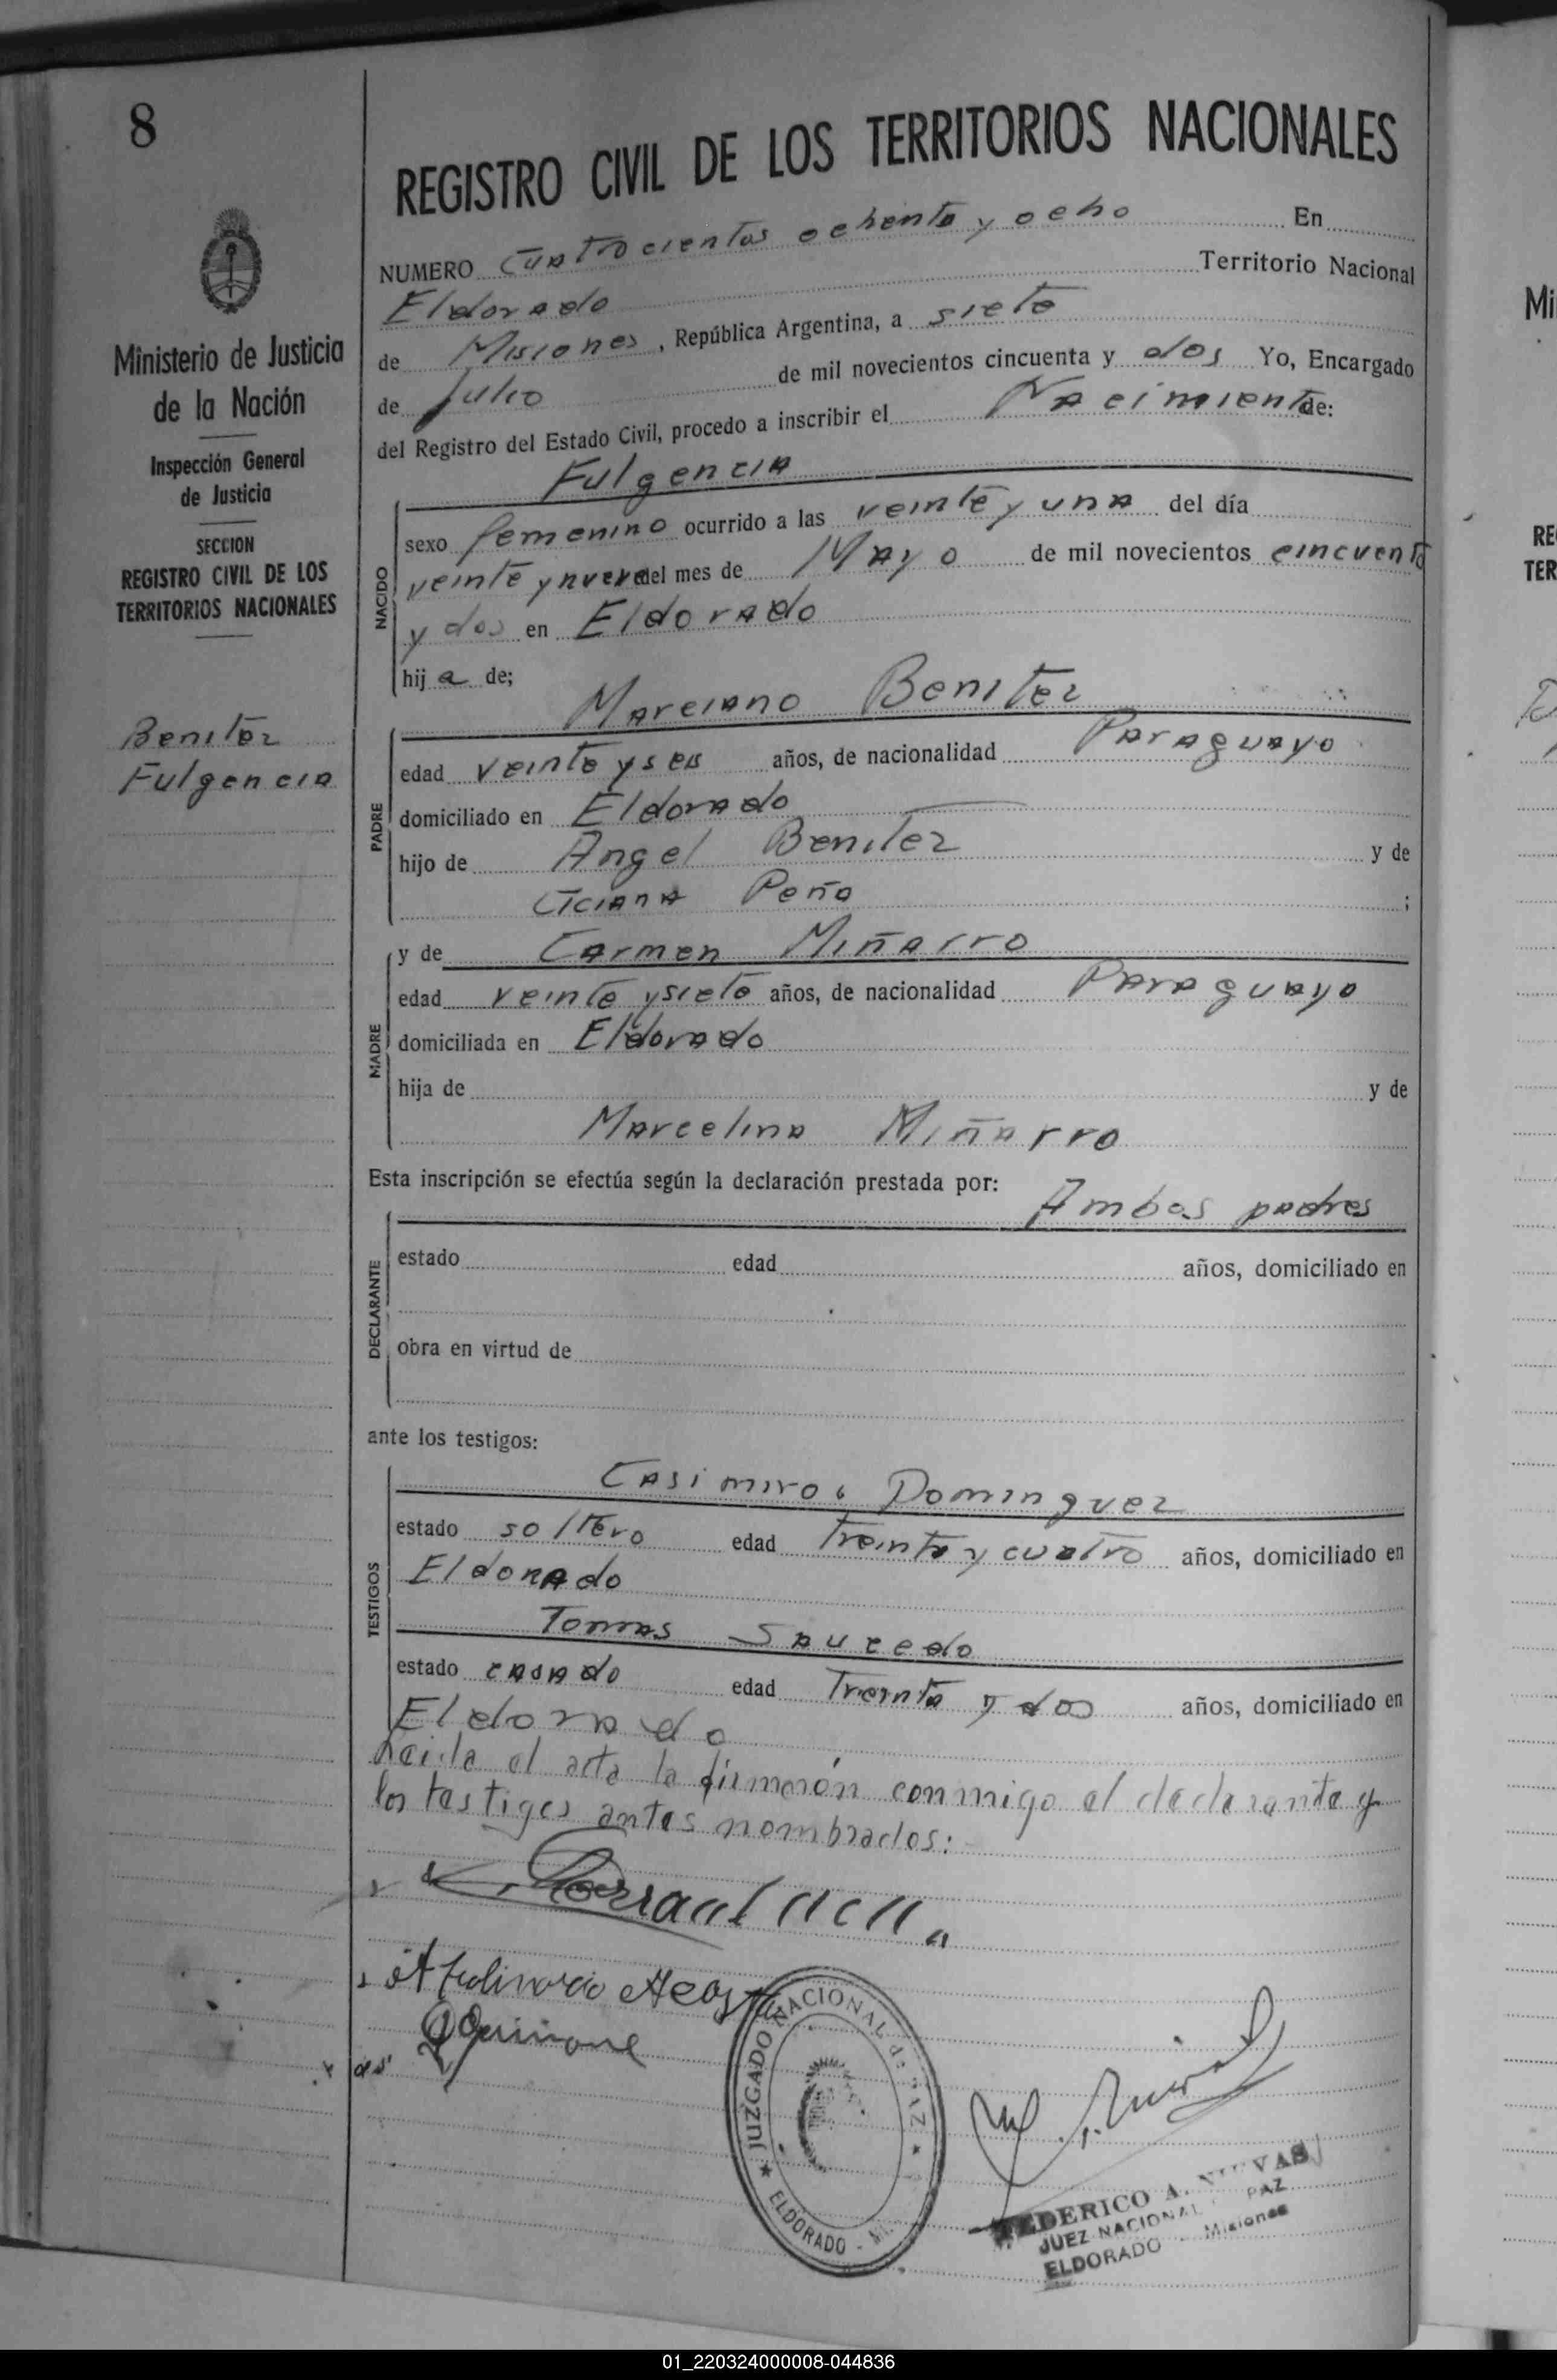 8
REGISTRO CIVIL DE LOS TERRITORIOS NACIONALES
Ministerio de Justicia
de la Nación
Inspección General
de Justicia
SECCION
REGISTRO CIVIL DE LOS
TERRITORIOS NACIONALES
Benitez
Fulgencia
NUMERO Cuatrocientos ochenta y ocho En
Eldorado Territorio Nacional
de Misiones, República Argentina, a siete
de Julio de mil novecientos cincuenta y dos Yo, Encargado
del Registro del Estado Civil, procedo a inscribir el Nacimiento de:
NACIDO
Fulgencia
sexo femenino ocurrido a las veinte y una del día
veinte y nueve del mes de Mayo de mil novecientos cincuenta
y dos en Eldorado
hija de;
PADRE
Marciano Benitez
edad veinte y seis años, de nacionalidad Paraguayo
domiciliado en Eldorado
hijo de Angel Benitez y de
Peña ;
MADRE
y de Carmen Miñarro
edad veinte y siete años, de nacionalidad Paraguayo
domiciliada en Eldorado
hija de y de
Marcelina Miñarro
Esta inscripción se efectúa según la declaración prestada por:
Ambos padres
DECLARANTE
estado edad años, domiciliado en
obra en virtud de
ante los testigos:
TESTIGOS
Casimiro Dominguez
estado soltero edad treinta y cuatro años, domiciliado en
Eldorado
Tomas Saucedo
estado casado edad Treinta y dos años, domiciliado en
Eldorado
Leida el acta la firmarón conmigo el declarante y
los testigos antes nombrados:
JUZGADO NACIONAL de PAZ
ELDORADO
FEDERICO A.
JUEZ NACIONAL PAZ
ELDORADO - Misiones
Mi
RE
TER
01_220324000008-044836